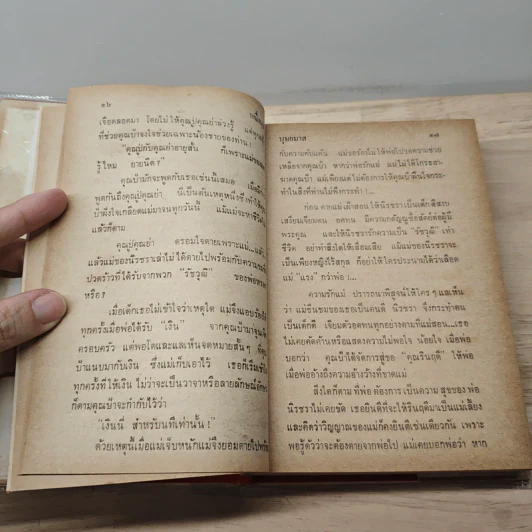 ๑๖
เจือตลอดมา โดยไม่ให้คุณปู่คุณย่าล่วงรู้
ที่ช่วยคุณป้าจงใจช่วยเฉพาะน้องชายของท่าน
"คุณปู่กับคุณย่าอายุสั้น ก็เพราะแม่ของ
รู้ไหม
คุณป้ามักจะพูดกับเธอเช่นนี้เสมอ เมื่อ
พูดกันถึงคุณปู่คุณย่า นี่เป็นต้นเหตุหนึ่งซึ่งทำให้คุณ
ป้าฝังใจเกลียดแม่มาจนทุกวันนี้ แม้แม่จะหาชีวิต
แล้วก็ตาม
คุณปู่คุณย่า ตรอมใจตายเพราะแม่...แล้ว
แล้วแม่ของนิรชราเล่าไม่ได้ตายไปพร้อมกับความ
ปวดร้าวที่ได้รับจากพวก "รัชวุฒิ" ของพ่อ
หรือ?
เมื่อเด็กเธอไม่เข้าใจว่าเหตุใด แม่จึงแอบร้องไห้
ทุกครั้งเมื่อพ่อได้รับ "เงิน" จากคุณป้ามาจุนเจือ
ครอบครัว แต่พอโตและแลเห็นจดหมายสั้น ๆ ที่คุณ
ป้าแนบมากับเงิน ซึ่งแม่เก็บเอาไว้ เธอก็
ทุกครั้งที่ให้เงิน ไม่ว่าจะเป็นวาจาหรือลายลักษณ์อักษร
ก็ตามคุณป้าจะกำกับไว้ว่า
"เงินนี่ สำหรับนทีเท่านั้น!"
ด้วยเหตุนี้เมื่อแม่เจ็บหนักแม่จึงยอมตายไปพร้อม
บุษยมาส ๑๗
กับความคับแค้น แม่ขอร้องไม่ให้พ่อไปงอความช่วย
เหลือจากคุณป้า หากว่าพ่อรักแม่ แม่ไม่ได้โกรธอา-
ฆาตคุณป้า แม่เพียงแต่ไม่ต้องการให้คุณป้าฝืนใจกระ-
ทำในสิ่งที่ท่านไม่พึงกระทำ!...
ก่อนตายแม่เฝ้าสอนให้นิรชราเป็นเด็กดีสงบ
เสงี่ยมเจียมตน อดทน มีความกตัญญูซื่อสัตย์ต่อผู้มี
พระคุณ และให้นิรชรารักความเป็น "รัชวุฒิ" เท่า
ชีวิต อย่าทำสิ่งใดให้เสื่อมเสีย แม้แม่ของนิรชราจะ
เป็นเพียงหญิงไร้สกุล ก็อย่าให้ใครประนามได้ว่าเลือด
แม่ "แรง" กว่าพ่อ!...
ความรักแม่ ปรารถนาพิสูจน์ให้ใคร ๆ แลเห็น
ว่า แม่ชื่นชมของเธอเป็นคนดี นิรชรา จึงกระทำตน
เป็นเด็กดี เจียมตัวอดทนทุกอย่างตามที่แม่สอน...เธอ
ไม่เคยคัดค้านหรือแสดงความไม่พอใจ น้อยใจ เมื่อพ่อ
บอกว่า คุณป้าให้จัดการสู่ขอ "คุณรินฤดี" ให้พ่อ
เมื่อพ่ออ้างถึงความอ้างว้างที่ขาดแม่
สิ่งใดก็ตามที่พ่อต้องการเป็นความสุขของพ่อ
นิรชราไม่เคยขัด เธอยินดีที่จะให้รินฤดีมาเป็นแม่เลี้ยง
และคิดว่าวิญญาณของแม่ก็คงยินดีเช่นเดียวกัน เพราะ
พอรู้ตัวว่าจะต้องตายจากพ่อไป แม่เคยบอกพ่อว่า หาก